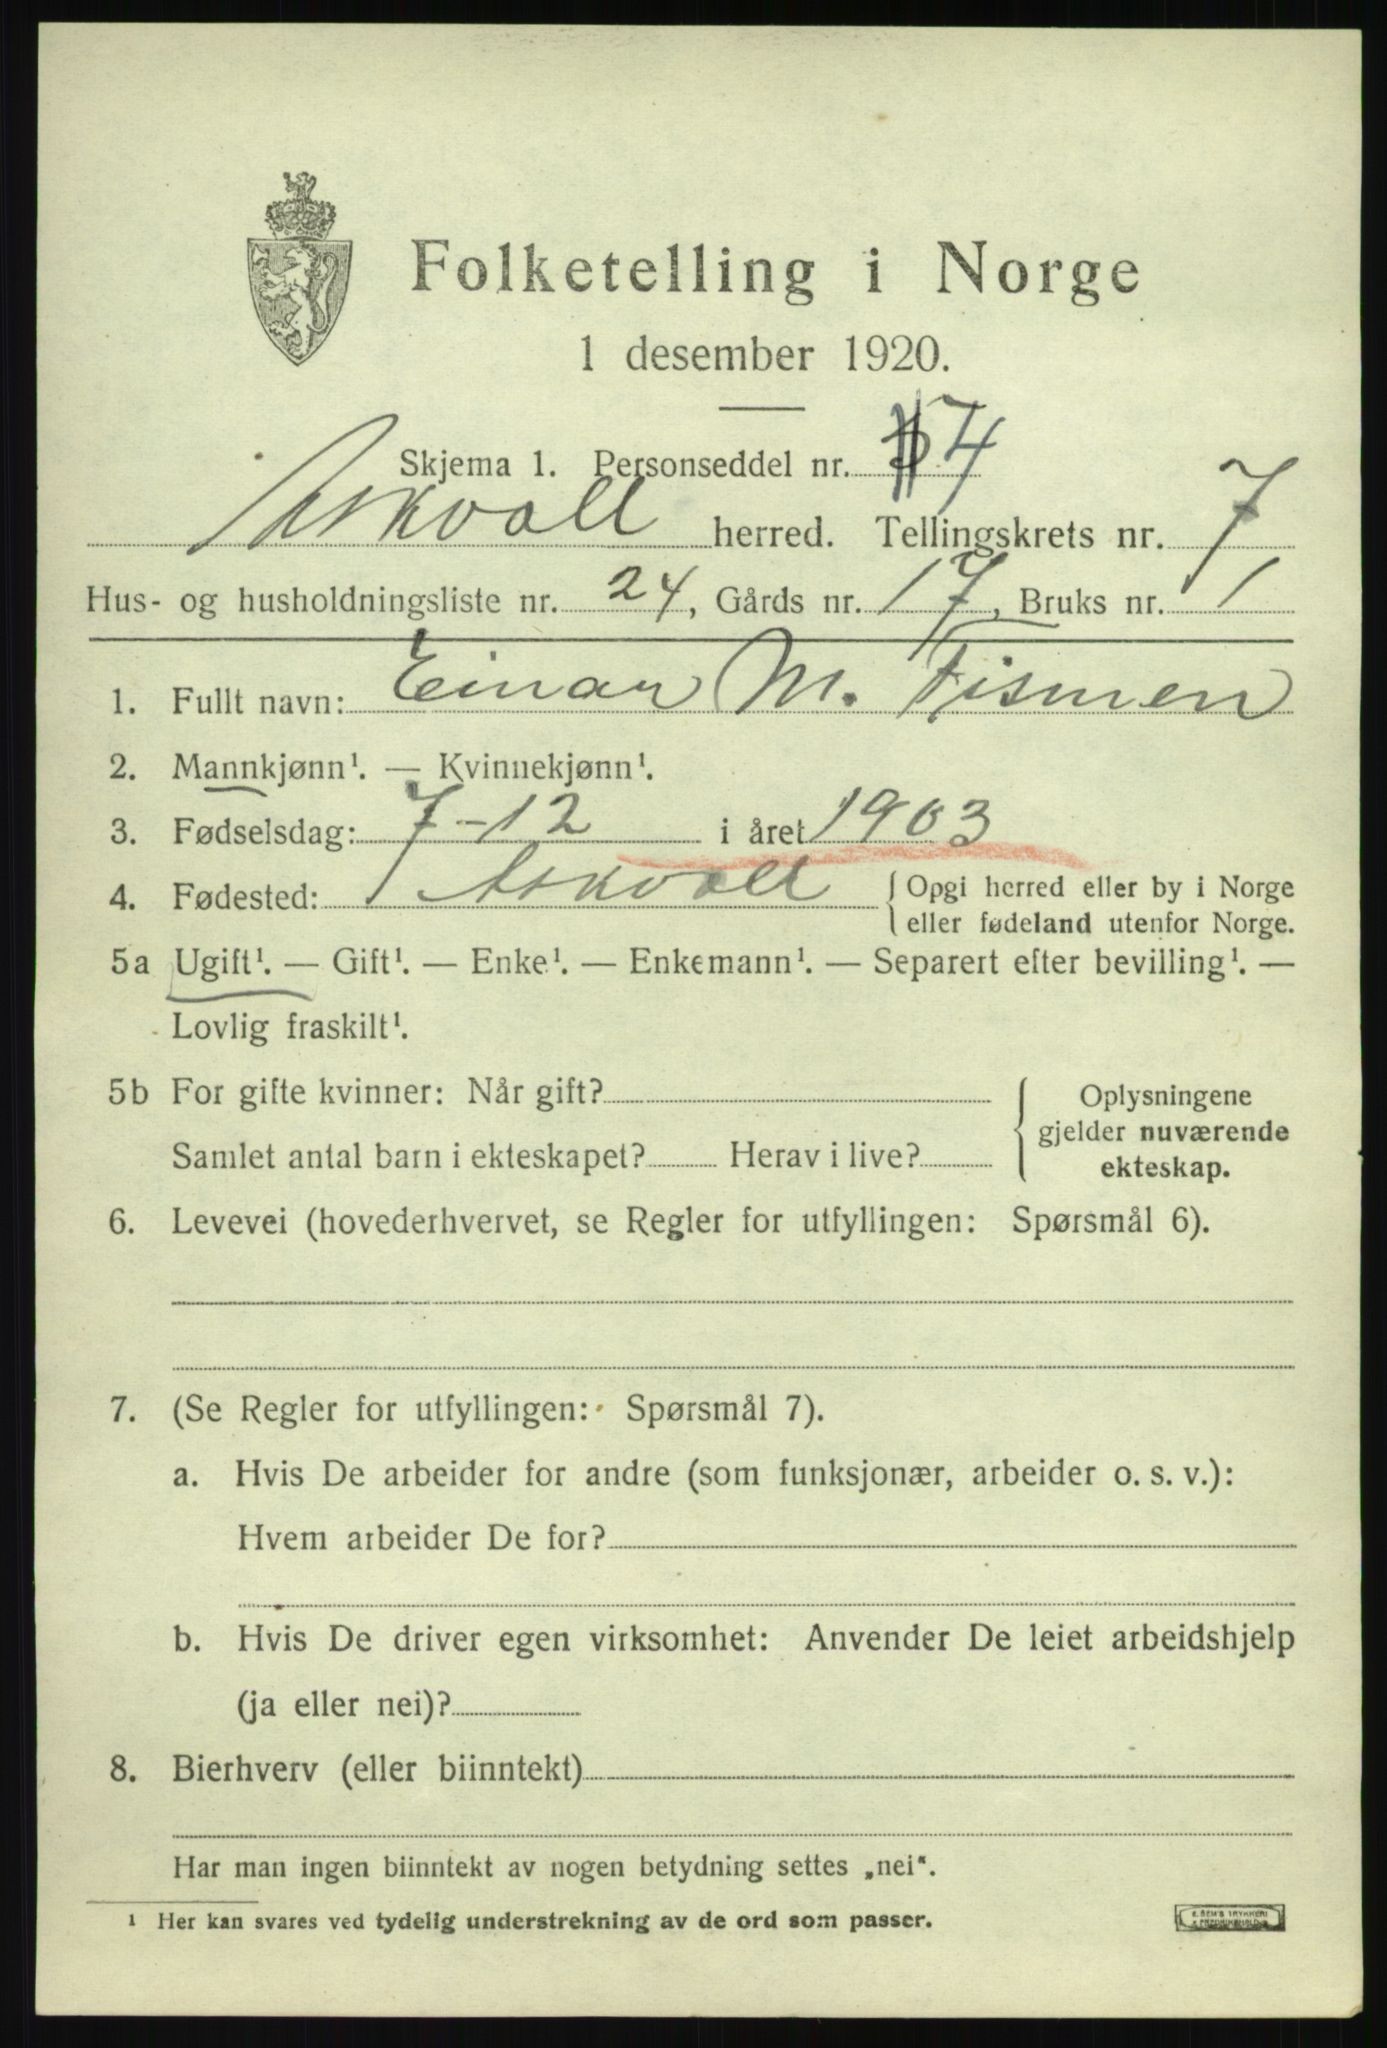 Folketelling i Norge
1 desember 1920.
Skjema 1. Personseddel nr. 4
Askvoll herred. Tellingskrets nr. 7
Hus- og husholdningsliste nr. 24, Gårds nr. 17, Bruks nr. 1
1. Fullt navn: Einar M. Fismen
2. Mannkjønn¹. — Kvinnekjønn¹.
3. Fødselsdag: 7-12 i året 1903
4. Fødested: Askvoll { Opgi herred eller by i Norge
eller fødeland utenfor Norge.
5a Ugift¹. — Gift¹. — Enke¹. — Enkemann¹. — Separert efter bevilling¹. —
Lovlig fraskilt¹.
5b For gifte kvinner: Når gift?
Samlet antal barn i ekteskapet? Herav i live?
Oplysningene
gjelder nuværende
ekteskap.
6. Levevei (hovederhvervet, se Regler for utfyllingen: Spørsmål 6).
7. (Se Regler for utfyllingen: Spørsmål 7).
a. Hvis De arbeider for andre (som funksjonær, arbeider o. s. v.):
Hvem arbeider De for?
b. Hvis De driver egen virksomhet: Anvender De leiet arbeidshjelp
(ja eller nei)?
8. Bierhverv (eller biinntekt)
Har man ingen biinntekt av nogen betydning settes „nei“.
¹ Her kan svares ved tydelig understrekning av de ord som passer.